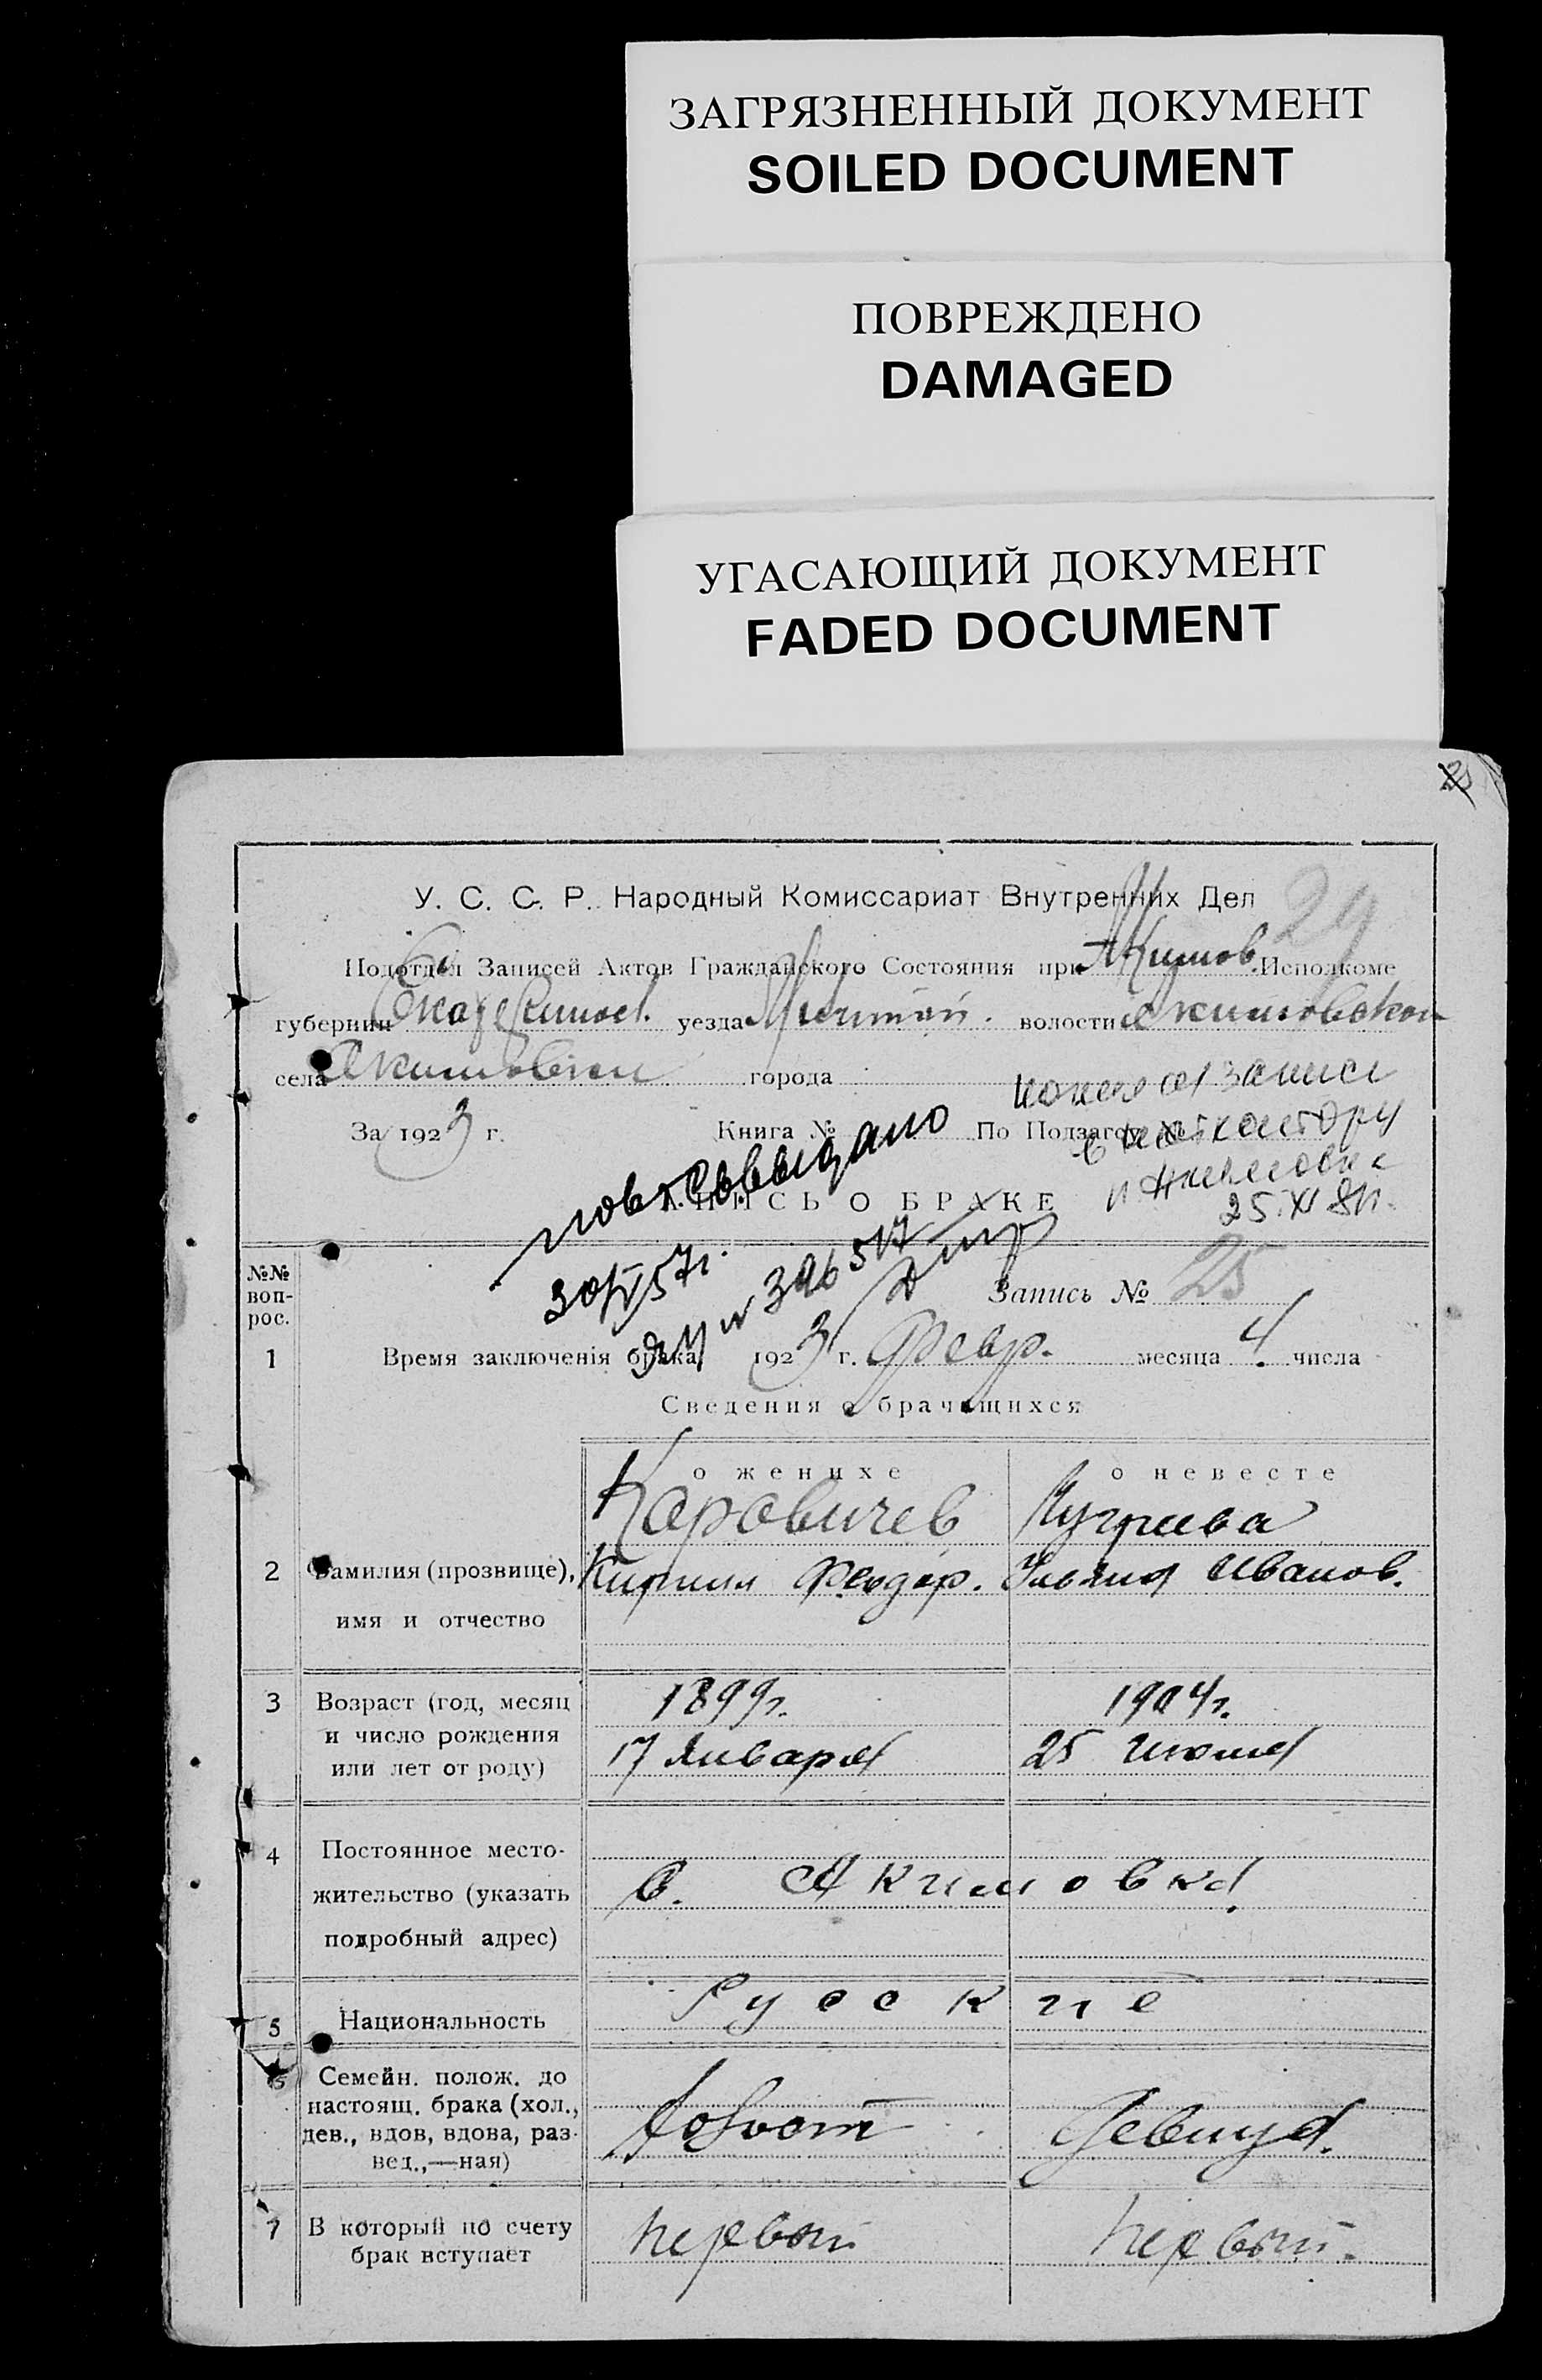 ЗАГРЯЗНЕННЫЙ ДОКУМЕНТ
SOILED DOCUMENT
ПОВРЕЖДЕНО
DAMAGED
УГАСАЮЩИЙ ДОКУМЕНТ
FADED DOCUMENT
29
У. С. С. Р. Народный Комиссариат Внутренних Дел
Подотдел Записей Актов Гражданского Состояния при Акимов. Исполкоме
губернии Екатеринос. уезда волости Акимовской
села Акимовки города
За 1923 г. Книга № По Подзагсу №
повт. св. выдано
ЗАПИСЬ О БРАКЕ
25.XI
30/VI 57 г.
396517
№№ воп-рос.
Запись № 25
1 Время заключенія брака 1923 г. Февр. месяца 4 числа
Сведения о брачащихся
о женихе о невесте
Каровичев
2 Фамилия (прозвище), Кирилл Феодор. Ульяна Иванов.
имя и отчество
3 Возраст (год, месяц 1899г. 1904г.
и число рождения 17 Января 25 Июня
или лет от роду)
4 Постоянное место-
жительство (указать с. Акимовка
подробный адрес)
5 Национальность Русские
6 Семейн. полож. до
настоящ. брака (хол.,
дев., вдов, вдова, раз- холост девица.
вед.,—ная)
7 В который по счету первый первый.
брак вступает